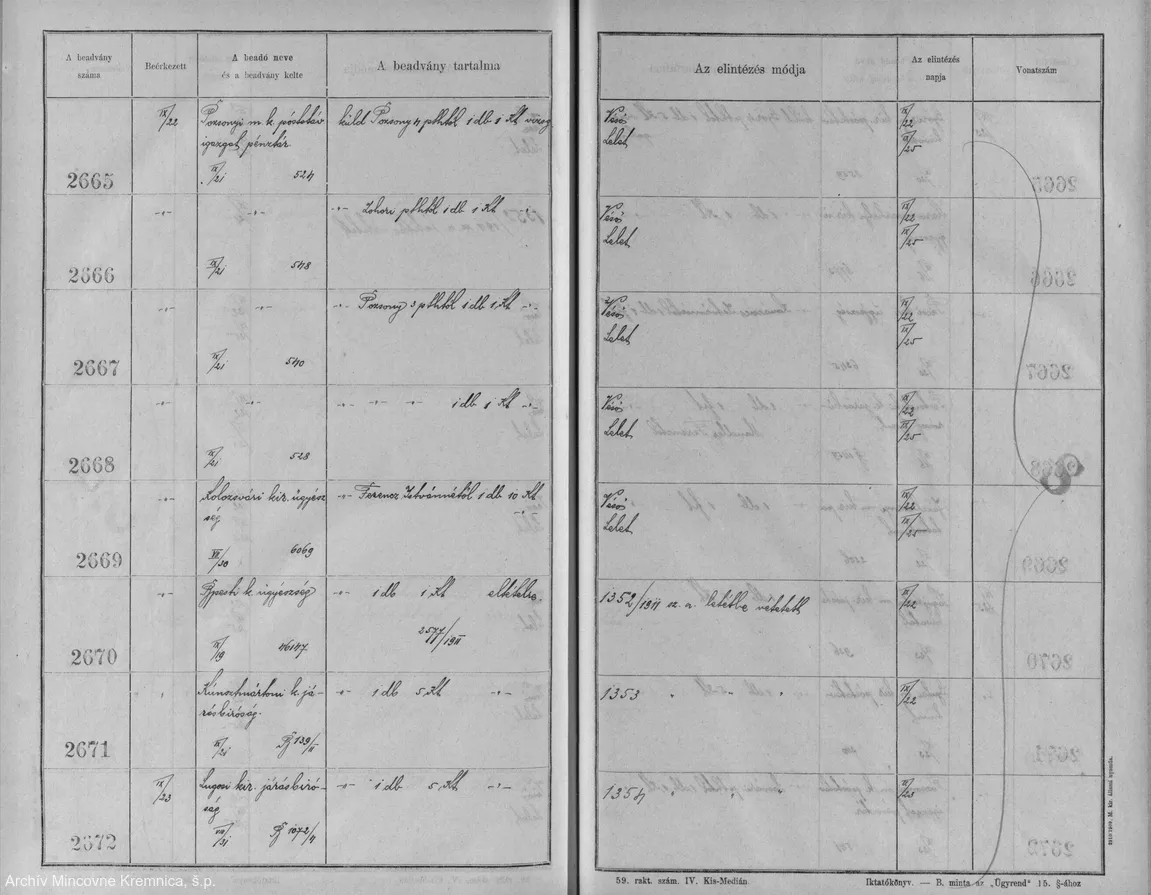 A beadvány
száma
Beérkezett
A beadó neve
és a beadvány kelte
A beadvány tartalma
Az elintézés módja
Az elintézés
napja
Vonatszám
IX/22
Pozsonyi m. k. póstatáv
igazgat. pénztár.
küld Pozsony 4 pthtól 1 db 1 Kt vizsg
2665
IX/21 524
Véső
Lelet
IX/22
IX/25
-"- -"- -"- Lohori pthtól 1 db 1 Kt -"-
2666
IX/21 548
Véső
Lelet
IX/22
IX/25
-"- -"- -"- Pozsony 3 pthtól 1 db 1 Kt -"-
2667
IX/21 540
Véső
Lelet
IX/22
IX/25
-"- -"- -"- -"- -"- 1 db 1 Kt -"-
2668
IX/21 528
Véső
Lelet
IX/22
IX/25
-"- Kolozsvári kir. ügyész
ség
-"- Ferencz Istvánnétól 1 db 10 Kt
-"-
2669
VII/30 6069
Véső
Lelet
IX/22
IX/25
-"- Bpesti k. ügyészség -"- 1 db 1 Kt eltételre
2577/1911
2670
IX/19 46147
1352/1911 sz. a. letétbe vétetett
IX/22
Kúnszentmártoni k. já-
rásbiróság.
-"- 1 db 5 Kt -"-
2671
IX/21 B 139/II
1353 " " "
IX/22
IX/23
Lugosi kir. járásbiró-
ság
-"- 1 db 5 Kt -"-
2672
VIII/31 B 1072/4
1354 " "
IX/23
2010 1909. M. kir. állami nyomda.
59. rakt. szám. IV. Kis-Medián.
Iktatókönyv. — B. minta az „Ügyrend" 15. §-ához
Archív Mincovne Kremnica, š.p.